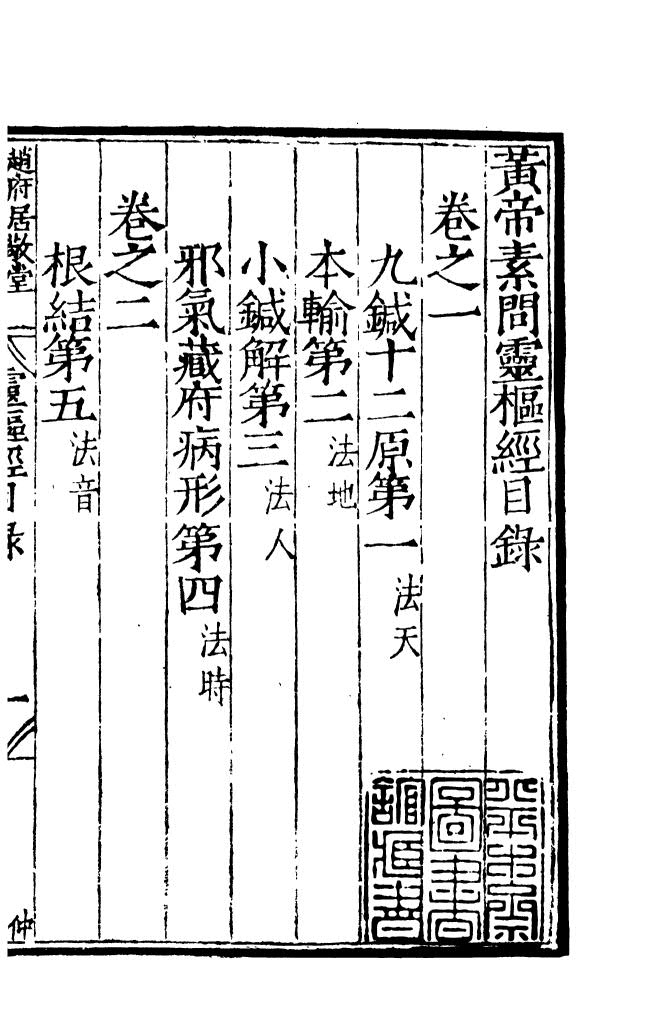 黃帝素問靈樞經目錄
卷之一
九鍼十二原第一 法天
本輸第二 法地
小鍼解第三 法人
邪氣藏府病形第四 法時
卷之二
根結第五 法音
趙府居敬堂
靈樞經目錄
一
仲